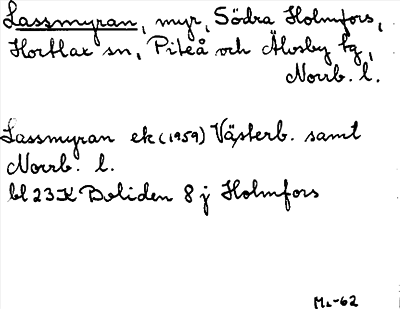 Lassmyran, myr, Södra Holmfors,
Hortlax sn, Piteå och Älvsby tg,
Norrb. l.
Lassmyran ek (1959) Västerb. samt
Norrb. l.
bl 23K Boliden 8 j Holmfors